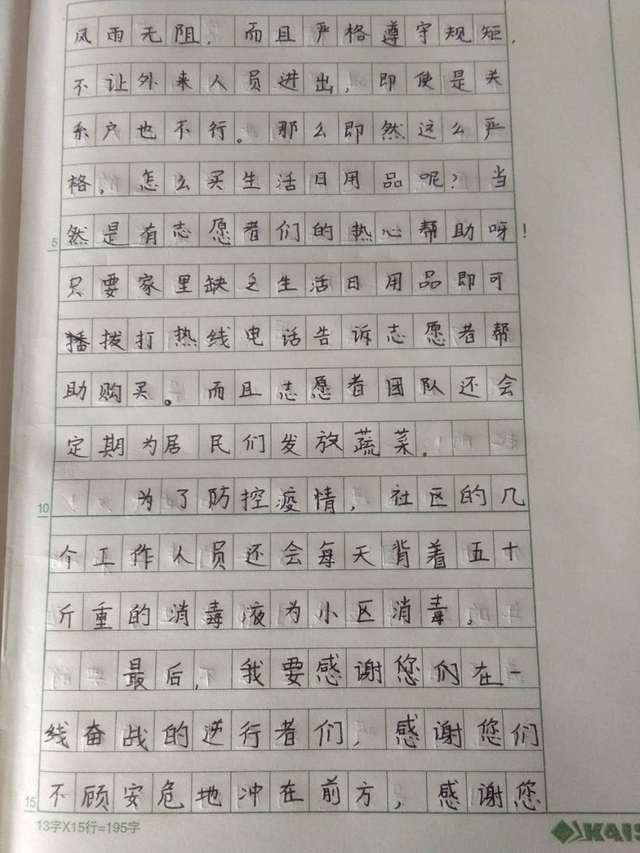 风雨无阻，而且严格遵守规短，
不让外来人员进出，即使是关
系户也不行。那么即然这么严
格，怎么买生活日用品呢？当
然是有志愿者们的热心帮助呀！
只要家里缺乏生活日用品即可
拨打热线电话告诉志愿者帮
助购买。而且志愿者团队还会
定期为居民们发放蔬菜。
为了防控疫情，社区的几
个工作人员还会每天背着五十
斤重的消毒液为小区消毒，
最后，我要感谢您们在一
线奋战的逆行者们，感谢您们
不顾安危地冲在前方，感谢您
5
10
15
13字X15行=195字